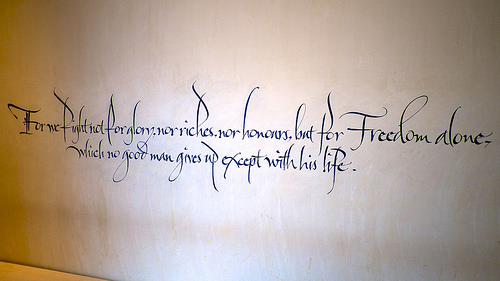 For we fight not for glory, nor riches, nor honours, but for Freedom alone,
which no good man gives up except with his life.